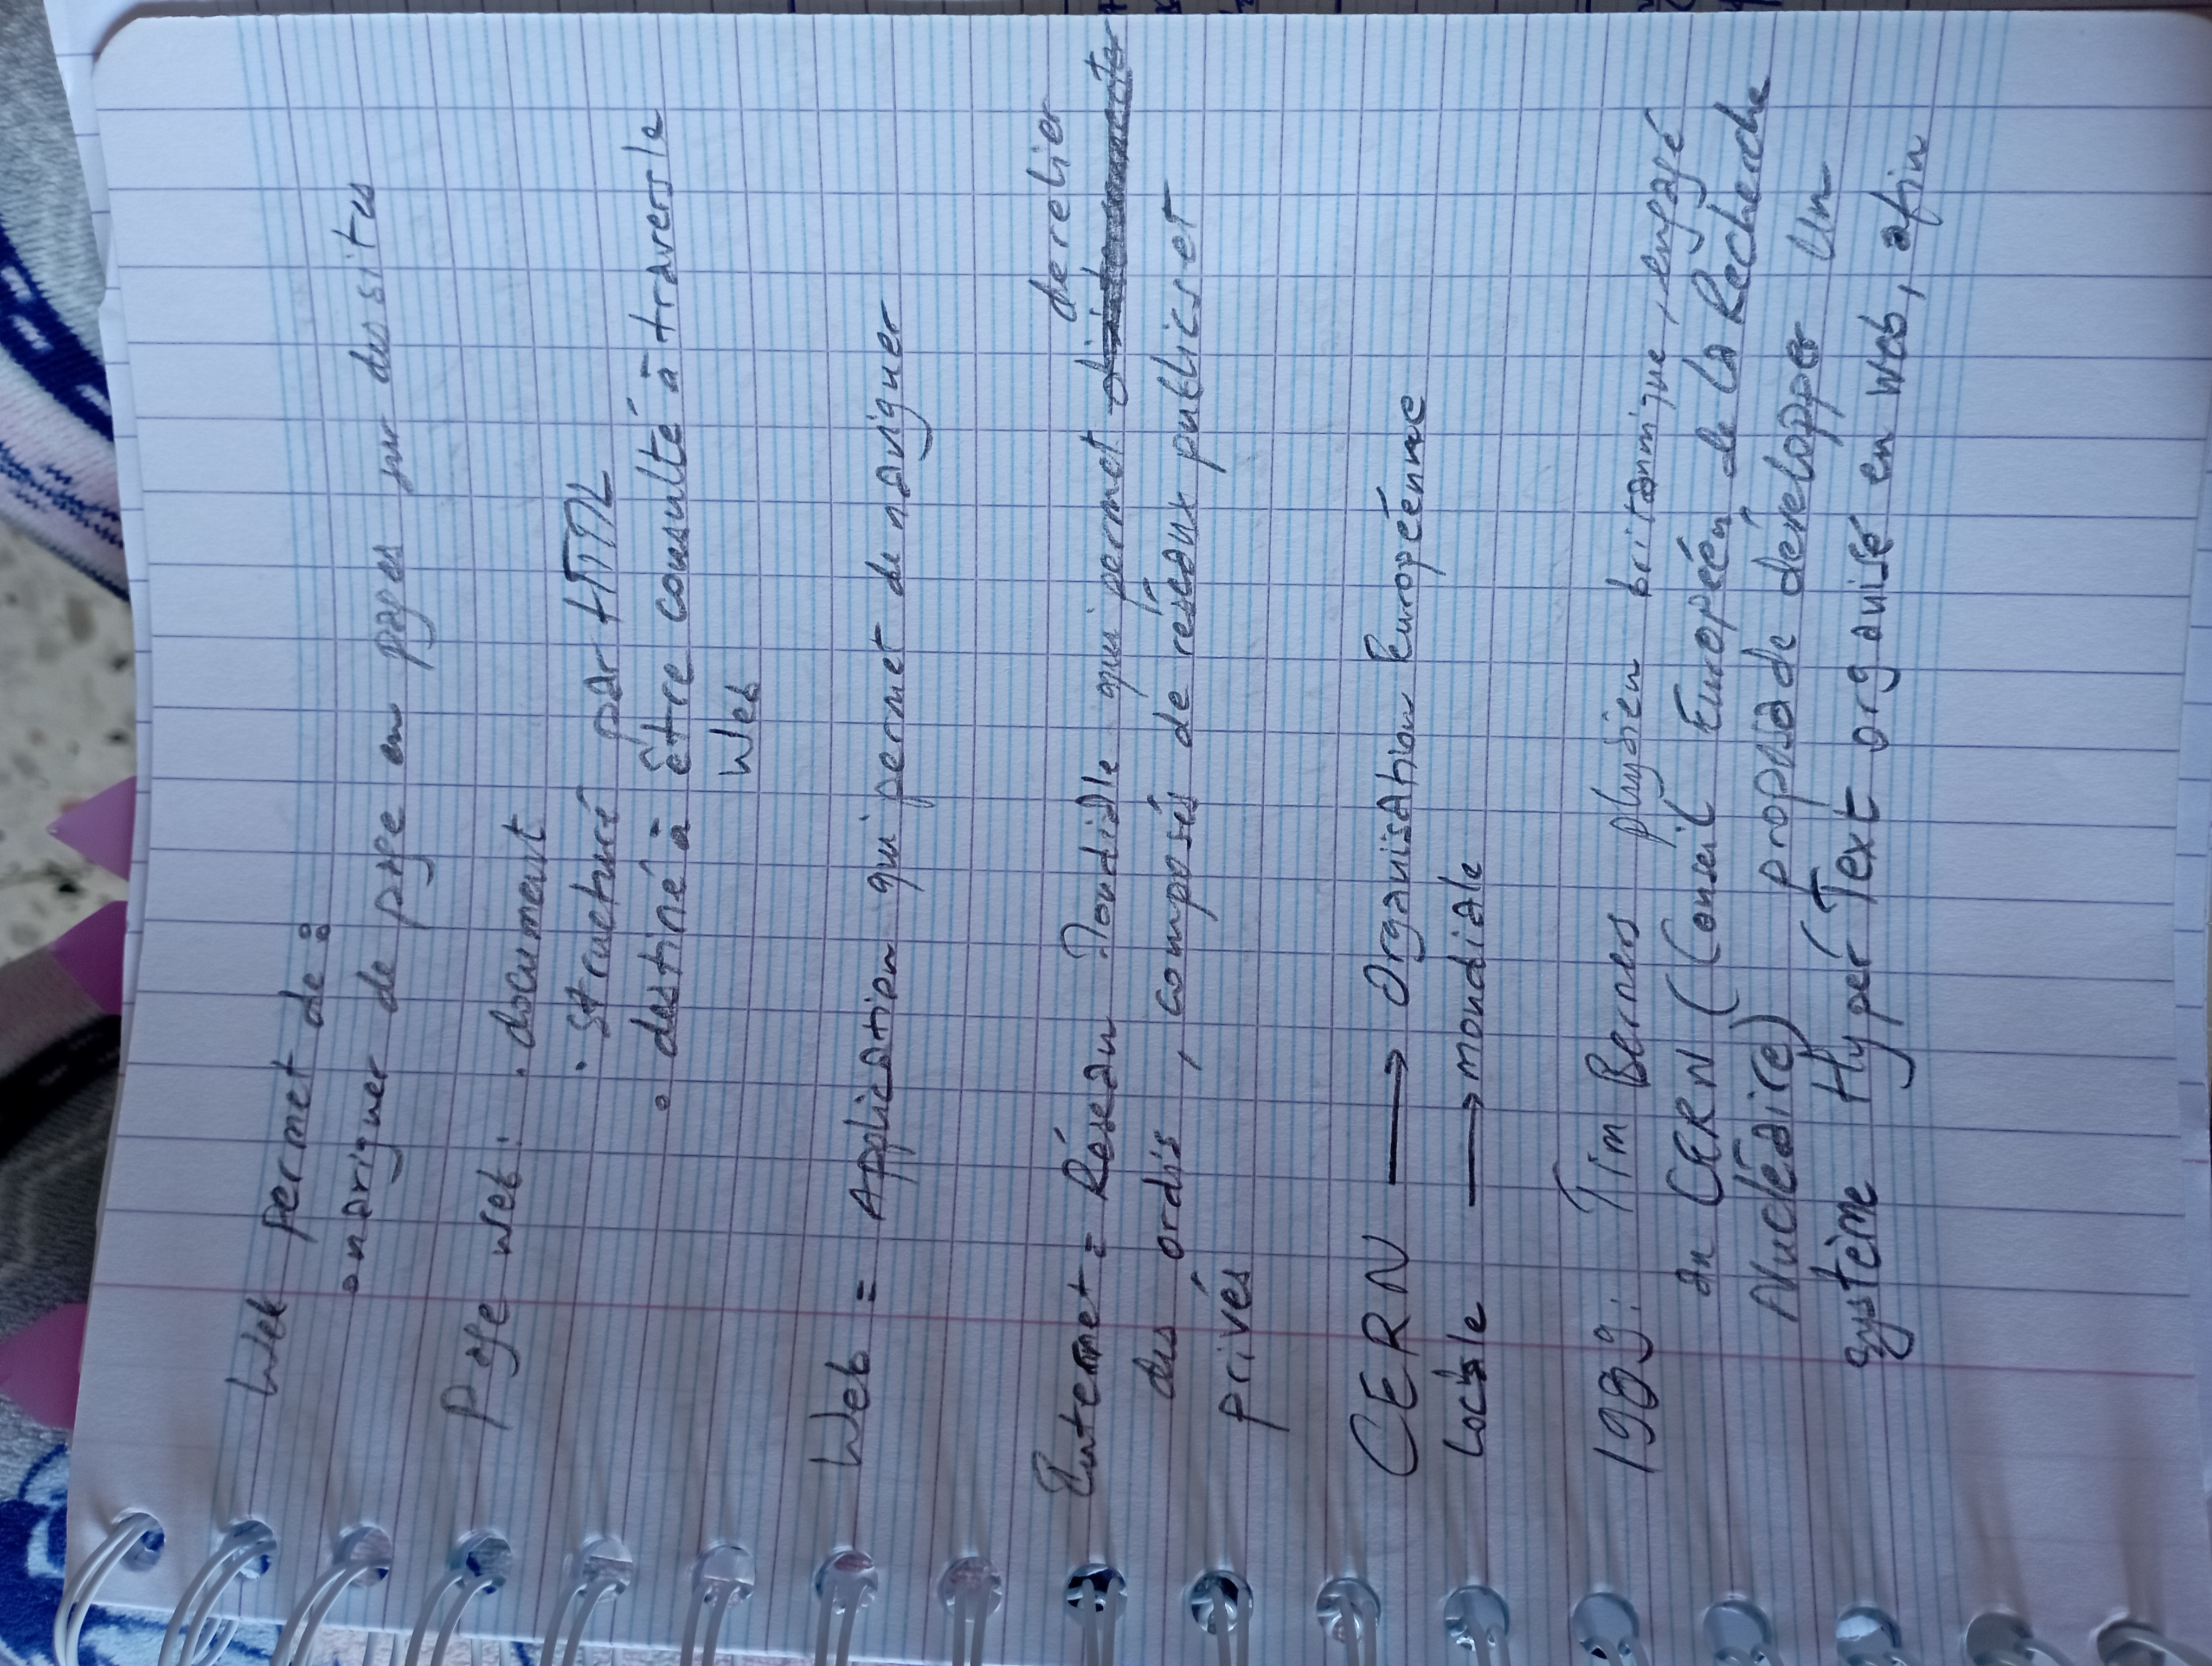 Web permet de :
• naviguer de page en pages sur des sites
Page web : • document
• structuré par HTML
• destiné à être consulté à travers le
Web
Web = Application qui permet de naviguer
de relier
Internet = Réseau Mondiale qui permet d'interconnecter
des ordis, composés de réseaux publics et
privés
CERN → Organisation Européenne
Locale → mondiale
1989 : Tim Berners physien britannique, engagé
au CERN (Conseil Européén de la Recherche
Nucléaire) proposa de développer un
système HyperText organisé en web, afin